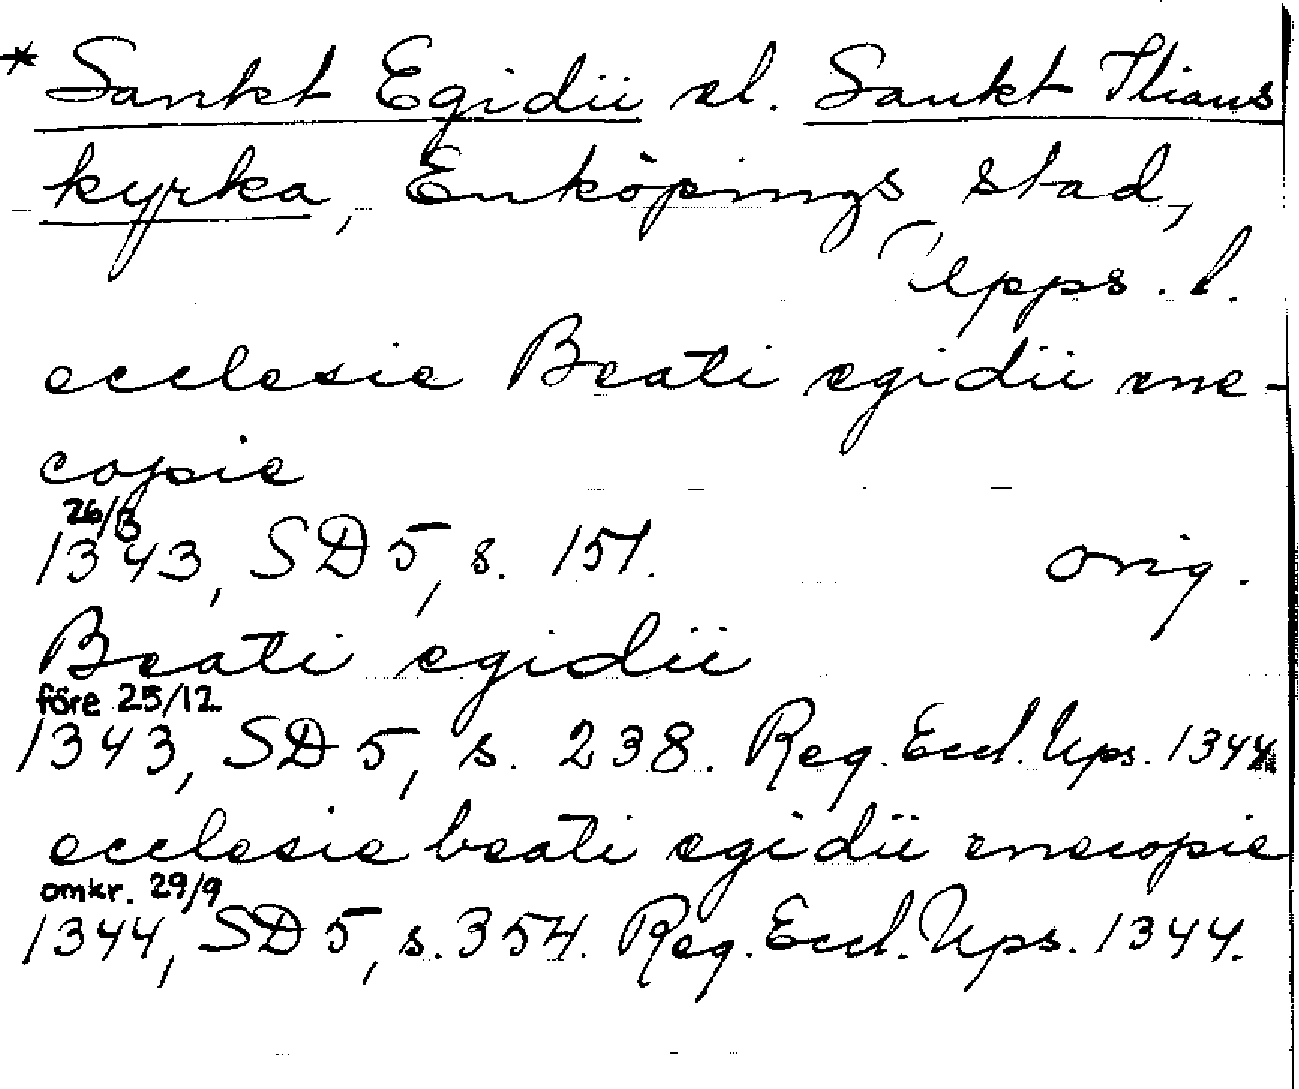 * Sankt Egidii el. Sankt Ilians
kyrka, Enköpings stad,
Upps. l.
ecclesie Beati egidii ene-
copie
26/3
1343, SD 5, s. 151. orig.
Beati egidii
före 25/12
1343, SD 5, s. 238. Reg. Eccl. Ups. 1344
ecclesie beati egidii enecopie
omkr. 29/9
1344, SD 5, s. 354. Reg. Eccl. Ups. 1344.